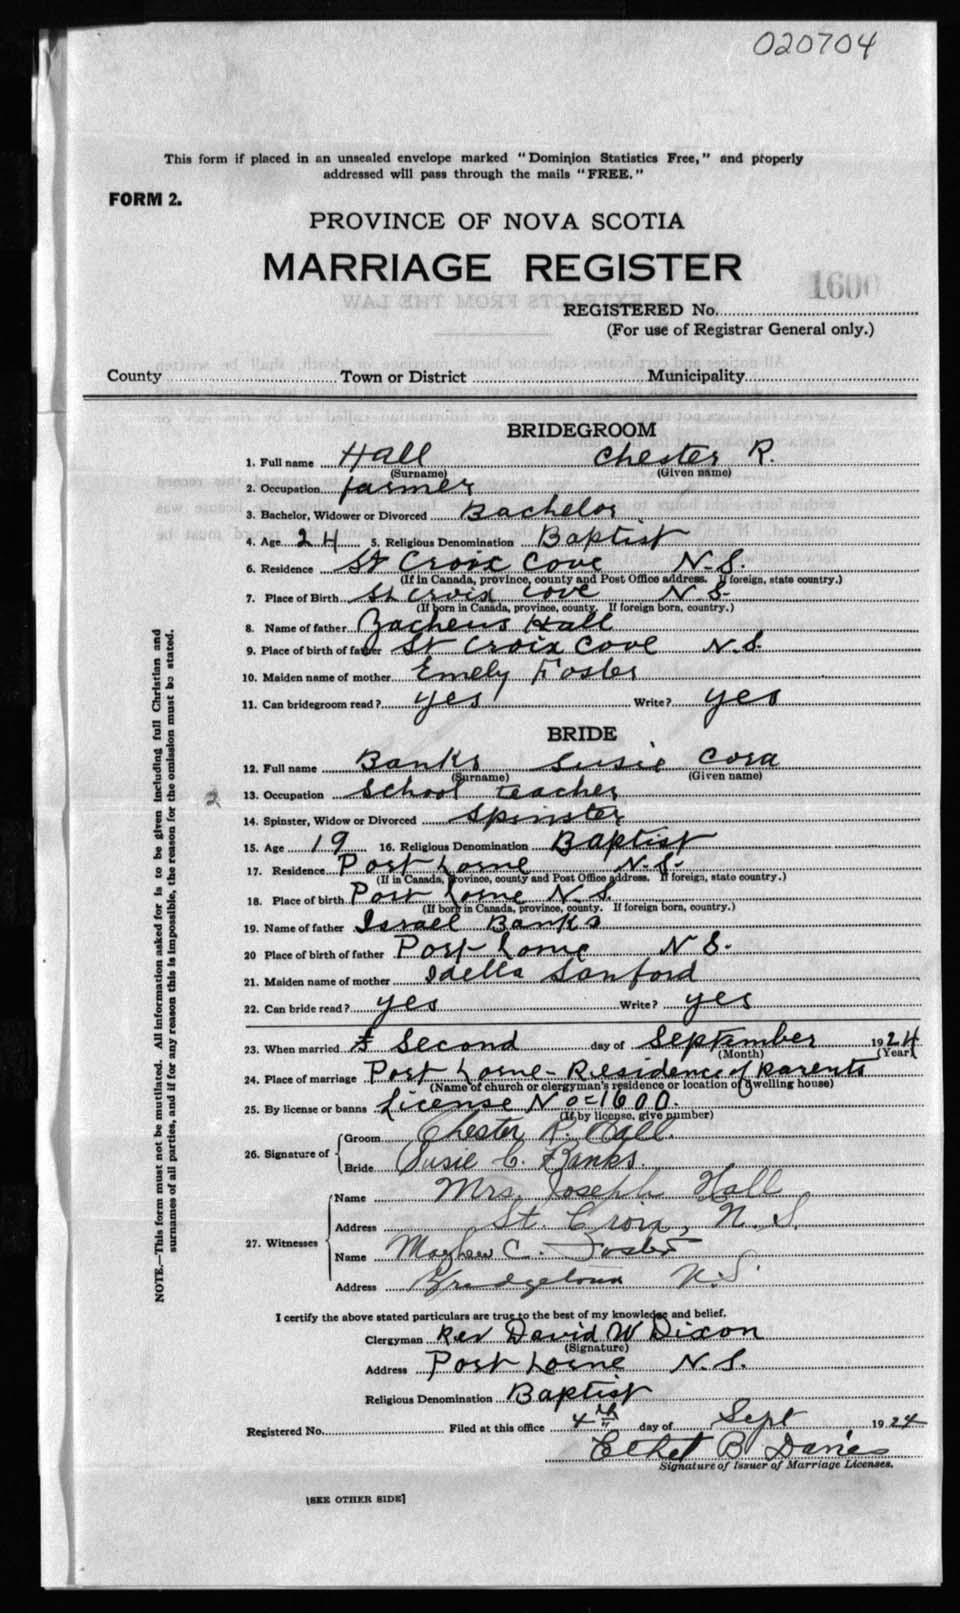 020704
This form if placed in an unsealed envelope marked "Dominion Statistics Free," and properly
addressed will pass through the mails "FREE."
FORM 2.
PROVINCE OF NOVA SCOTIA
MARRIAGE REGISTER
1600
REGISTERED No.
(For use of Registrar General only.)
County Town or District Municipality
BRIDEGROOM
1. Full name Hall Chester R.
(Surname) (Given name)
2. Occupation farmer
3. Bachelor, Widower or Divorced Bachelor
4. Age 24 5. Religious Denomination Baptist
6. Residence St Croix Cove N.S.
(If in Canada, province, county and Post Office address. If foreign, state country.)
7. Place of Birth St Croix Cove N.S.
(If born in Canada, province, county. If foreign born, country.)
8. Name of father Zacheus Hall
9. Place of birth of father St Croix Cove N.S.
10. Maiden name of mother Emely Foster
11. Can bridegroom read? yes Write? yes
BRIDE
12. Full name Banks Susie Cora
(Surname) (Given name)
2
13. Occupation School teacher
14. Spinster, Widow or Divorced Spinster
15. Age 19 16. Religious Denomination Baptist
17. Residence Port Lorne N.S.
(If in Canada, province, county and Post Office address. If foreign, state country.)
18. Place of birth Port Lorne N.S.
(If born in Canada, province, county. If foreign born, country.)
19. Name of father Israel Banks
20 Place of birth of father Port Lorne N S.
21. Maiden name of mother Idella Sanford
22. Can bride read? yes Write? yes
23. When married Second day of September 1924
(Month) (Year)
24. Place of marriage Port Lorne - Residence of parents
(Name of church or clergyman's residence or location of dwelling house)
25. By license or banns License No=1600.
(If by license, give number)
26. Signature of
Groom Chester R. Hall.
Bride Susie C. Banks.
27. Witnesses
Name Mrs. Joseph Hall
Address St. Croix, N.S.
Name Mayhew C. Foster
Address Bridgetown N.S.
I certify the above stated particulars are true to the best of my knowledge and belief.
Clergyman Rev David W Dixon
(Signature)
Address Port Lorne N.S.
Religious Denomination Baptist
Registered No. Filed at this office 4th day of Sept 1924
Ethel B Davies
Signature of Issuer of Marriage Licenses.
[SEE OTHER SIDE]
NOTE.—This form must not be mutilated. All information asked for is to be given including full Christian and
surnames of all parties, and if for any reason this is impossible, the reason for the omission must be stated.